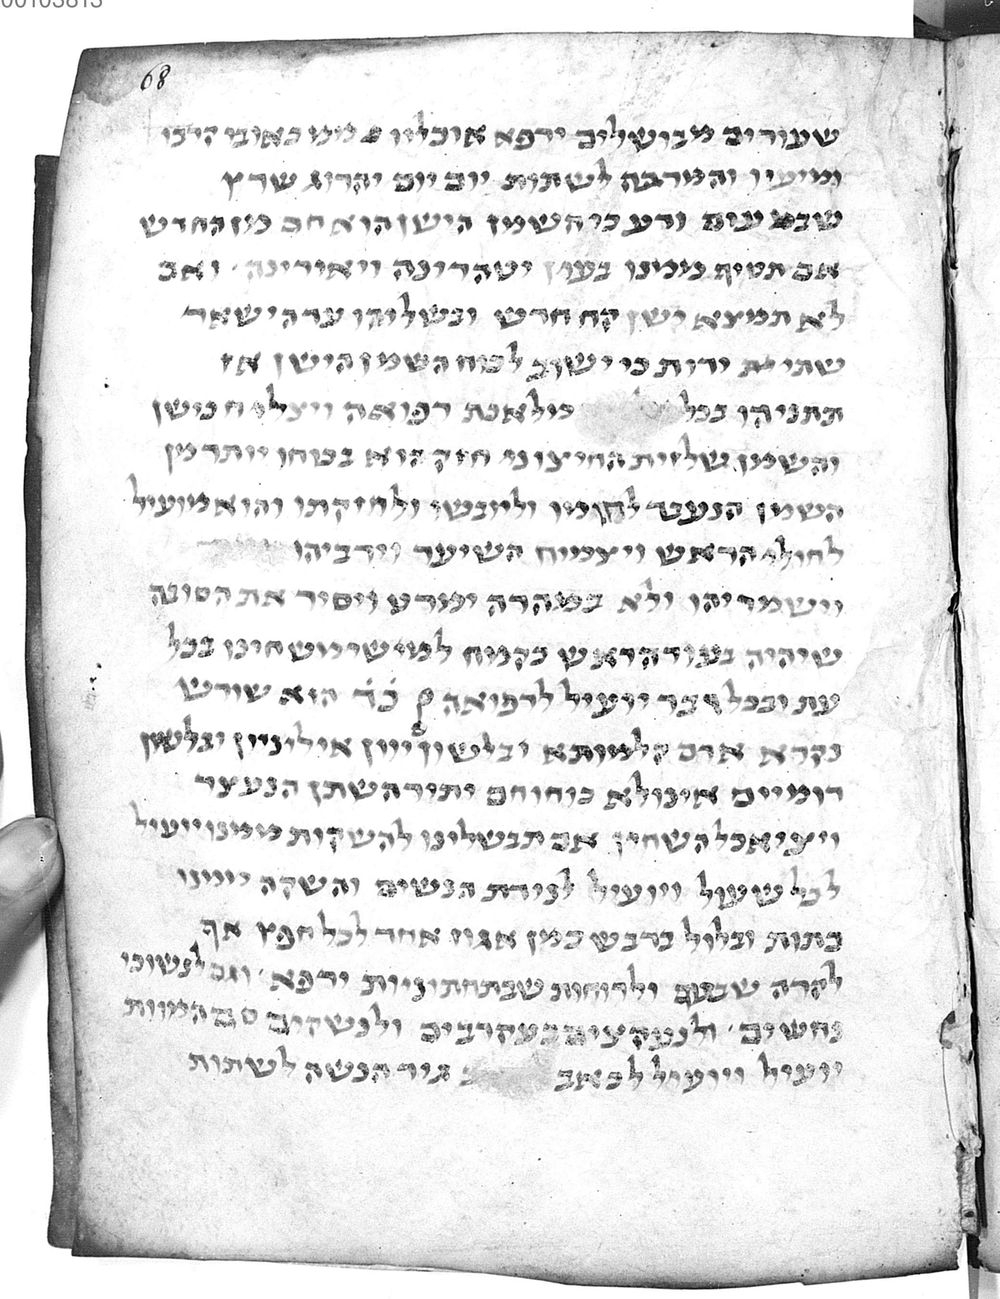 00103813
68
שעורים מבושלים ירפא אוכליו ממכאובי קרבו
ומיעיו והמרבה לשתות יום יום יהרוג שרץ
שבמעים ודע כי השמן הישן הוא חם מן החדש
אם תטיף ממינו בעין יטהרינה ויאירינה ואם
לא תמצא ישן קח חדש ובשליהו עד הישאר
שתי ידות כי ישוב לכוח השמן הישן אז
תתניהו בכל מלאכת רפואה ויצליח כישן
והשמן שלזית החיצוני חזק הוא בכוחו יותר מן
השמן הנעבד לחומו וליובשו ולחזקתו והוא מועיל
לחולי הראש ויצמיח השיער וירביהו
וישמריהו ולא במהרה ימרט ויסיר את הסובה
שיהיה בעור הראש כקמח למי שימשחינו בכל
עת ובכל דבר יועיל לרפואה ק כד הוא שורש
נקרא ארם קלמותא ובלשון יוון אוליניון ובלשון
רומיים אינולא כוחו חם יתיר השתן הנעצר
ויציא כל השחין אם תבשלינו להשקות ממינו יועיל
לכל שעול ויועיל לנידת הנשים והשקה ימינו
כתות ובלול בדבש כמן אגוז אחד לכל חפץ אף
לקרה שבטן ולרוחות שבתחתוניות ירפא וגם לנשוכי
נחשים ולנעקצים בעקרבים ולנשקים סם המוות
יועיל ויועיל לכאב גיד הנשה לשתות